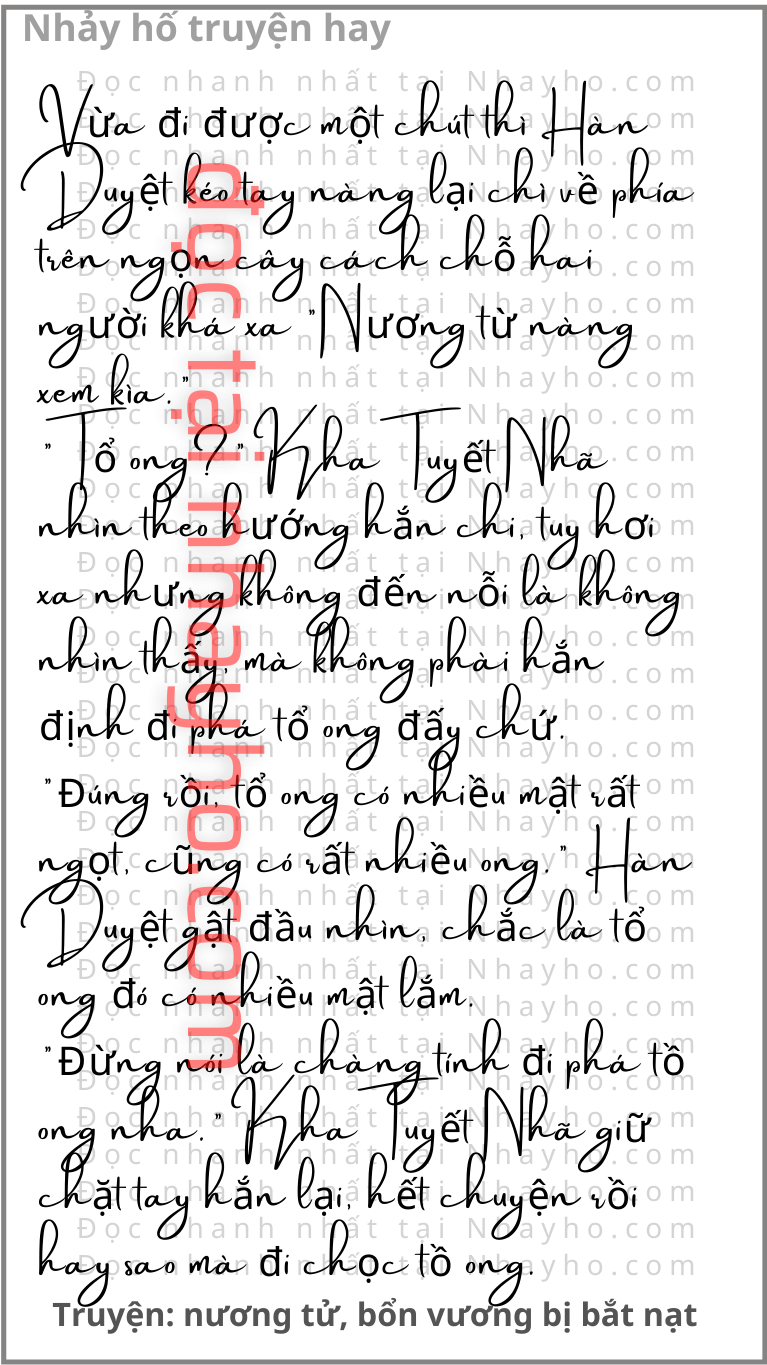 Nhảy hố truyện hay
Vừa đi được một chút thì Hàn
Duyệt kéo tay nàng lại chỉ về phía
trên ngọn cây cách chỗ hai
người khá xa "Nương tử nàng
xem kìa."
"Tổ ong?" Kha Tuyết Nhã
nhìn theo hướng hắn chỉ, tuy hơi
xa nhưng không đến nỗi là không
nhìn thấy, mà không phải hắn
định đi phá tổ ong đấy chứ.
"Đúng rồi, tổ ong có nhiều mật rất
ngọt, cũng có rất nhiều ong." Hàn
Duyệt gật đầu nhìn, chắc là tổ
ong đó có nhiều mật lắm.
"Đừng nói là chàng tính đi phá tổ
ong nha." Kha Tuyết Nhã giữ
chặt tay hắn lại, hết chuyện rồi
hay sao mà đi chọc tổ ong.
Truyện: nương tử, bổn vương bị bắt nạt
đọc tại nhayho.com
Đọc nhanh nhất tại Nhayho.com